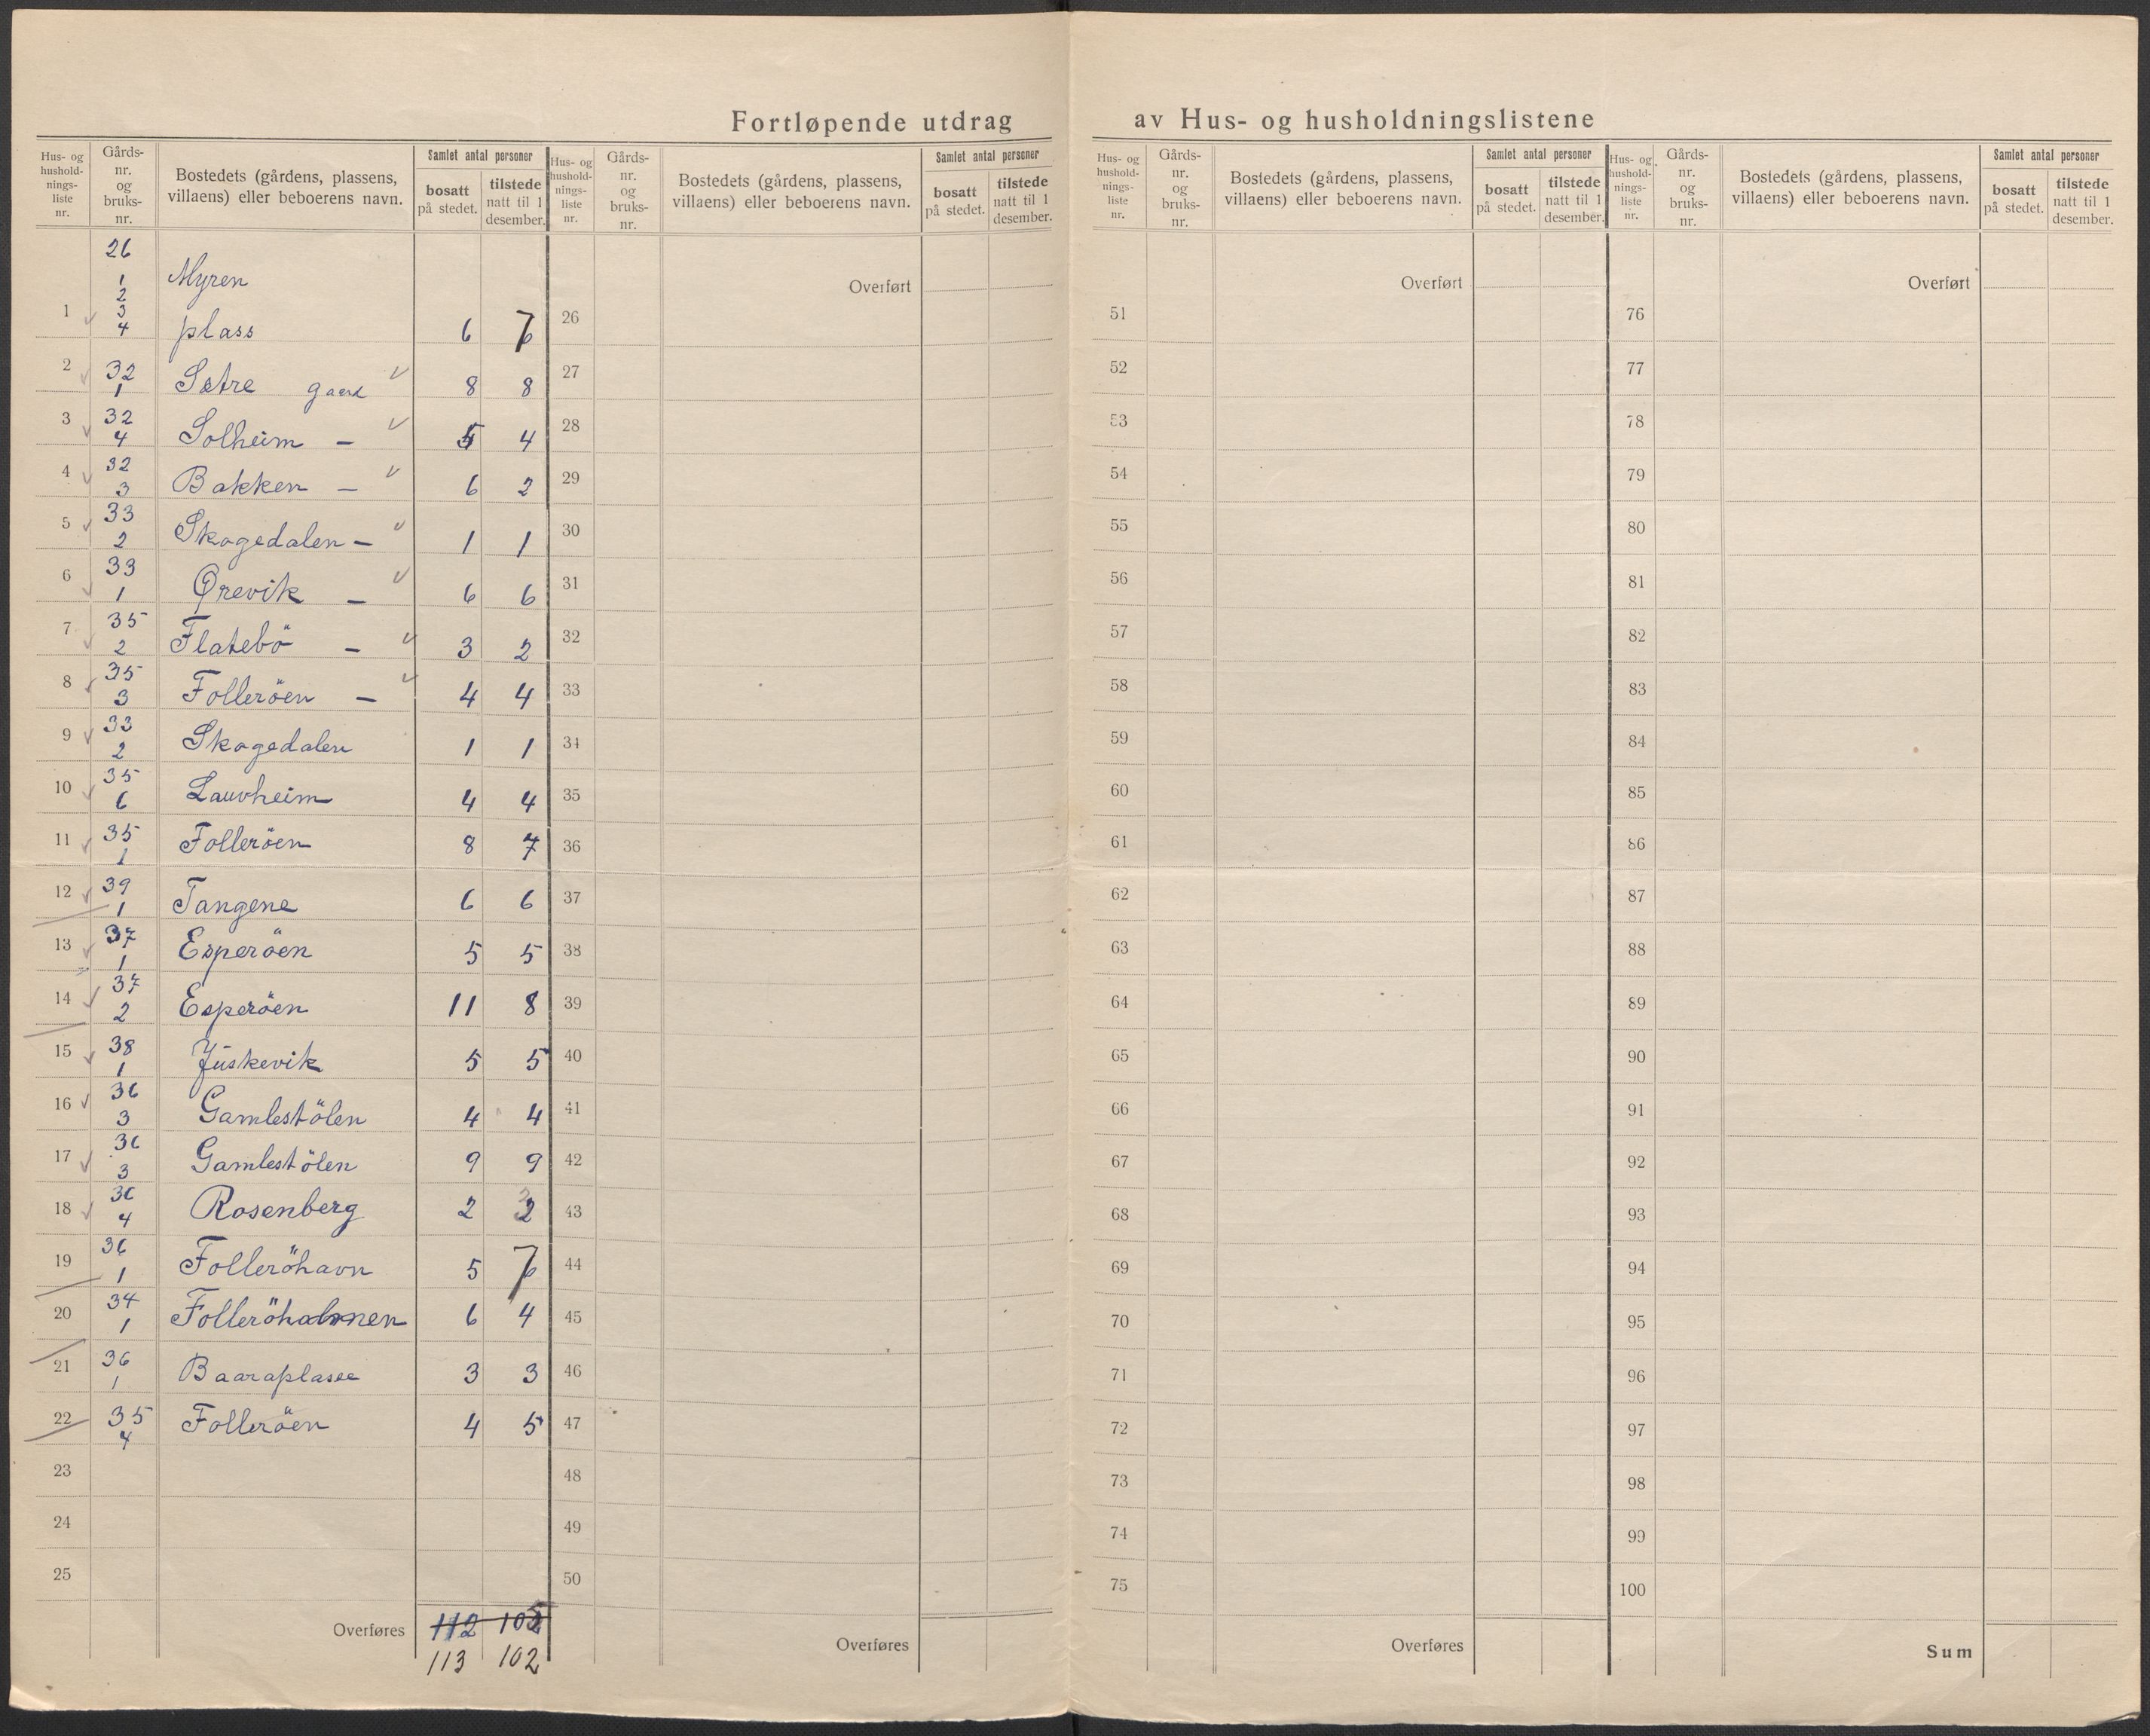 Fortløpende utdrag av Hus- og husholdningslistene
Hus- og hushold-nings-liste nr. Gårds-nr. og bruks-nr. Bostedets (gårdens, plassens, villaens) eller beboerens navn. Samlet antal personer bosatt på stedet. tilstede natt til 1 desember.
Hus- og hushold-nings-liste nr. Gårds-nr. og bruks-nr. Bostedets (gårdens, plassens, villaens) eller beboerens navn. Samlet antal personer bosatt på stedet. tilstede natt til 1 desember.
Hus- og hushold-nings-liste nr. Gårds-nr. og bruks-nr. Bostedets (gårdens, plassens, villaens) eller beboerens navn. Samlet antal personer bosatt på stedet. tilstede natt til 1 desember.
Hus- og hushold-nings-liste nr. Gårds-nr. og bruks-nr. Bostedets (gårdens, plassens, villaens) eller beboerens navn. Samlet antal personer bosatt på stedet. tilstede natt til 1 desember.
26
1 Myren
2
3
1 4 plass 6 7
2 32 1 Sætre gaard 8 8
3 32 4 Solheim - 5 4
4 32 3 Bakken - 6 2
5 33 2 Skogedalen - 1 1
6 33 1 Ørevik - 6 6
7 35 2 Flatebö - 3 2
8 35 3 Folleröen - 4 4
9 33 2 Skogedalen 1 1
10 35 6 Lauvheim 4 4
11 35 1 Folleröen 8 7
12 39 1 Tangene 6 6
13 37 1 Esperöen 5 5
14 37 2 Esperöen 11 8
15 38 1 Juskevik 5 5
16 36 3 Gamlestölen 4 4
17 36 3 Gamlestölen 9 9
18 36 4 Rosenberg 2 2
19 36 1 Folleröhavn 5 7
20 34 1 Folleröholmen 6 4
21 36 1 Baaraplasse 3 3
22 35 4 Folleröen 4 5
23
24
25
Overføres 112 102
113 102
Overført
26
27
28
29
30
31
32
33
34
35
36
37
38
39
40
41
42
43
44
45
46
47
48
49
50
Overføres
Overført
51
52
53
54
55
56
57
58
59
60
61
62
63
64
65
66
67
68
69
70
71
72
73
74
75
Overføres
Overført
76
77
78
79
80
81
82
83
84
85
86
87
88
89
90
91
92
93
94
95
96
97
98
99
100
Sum